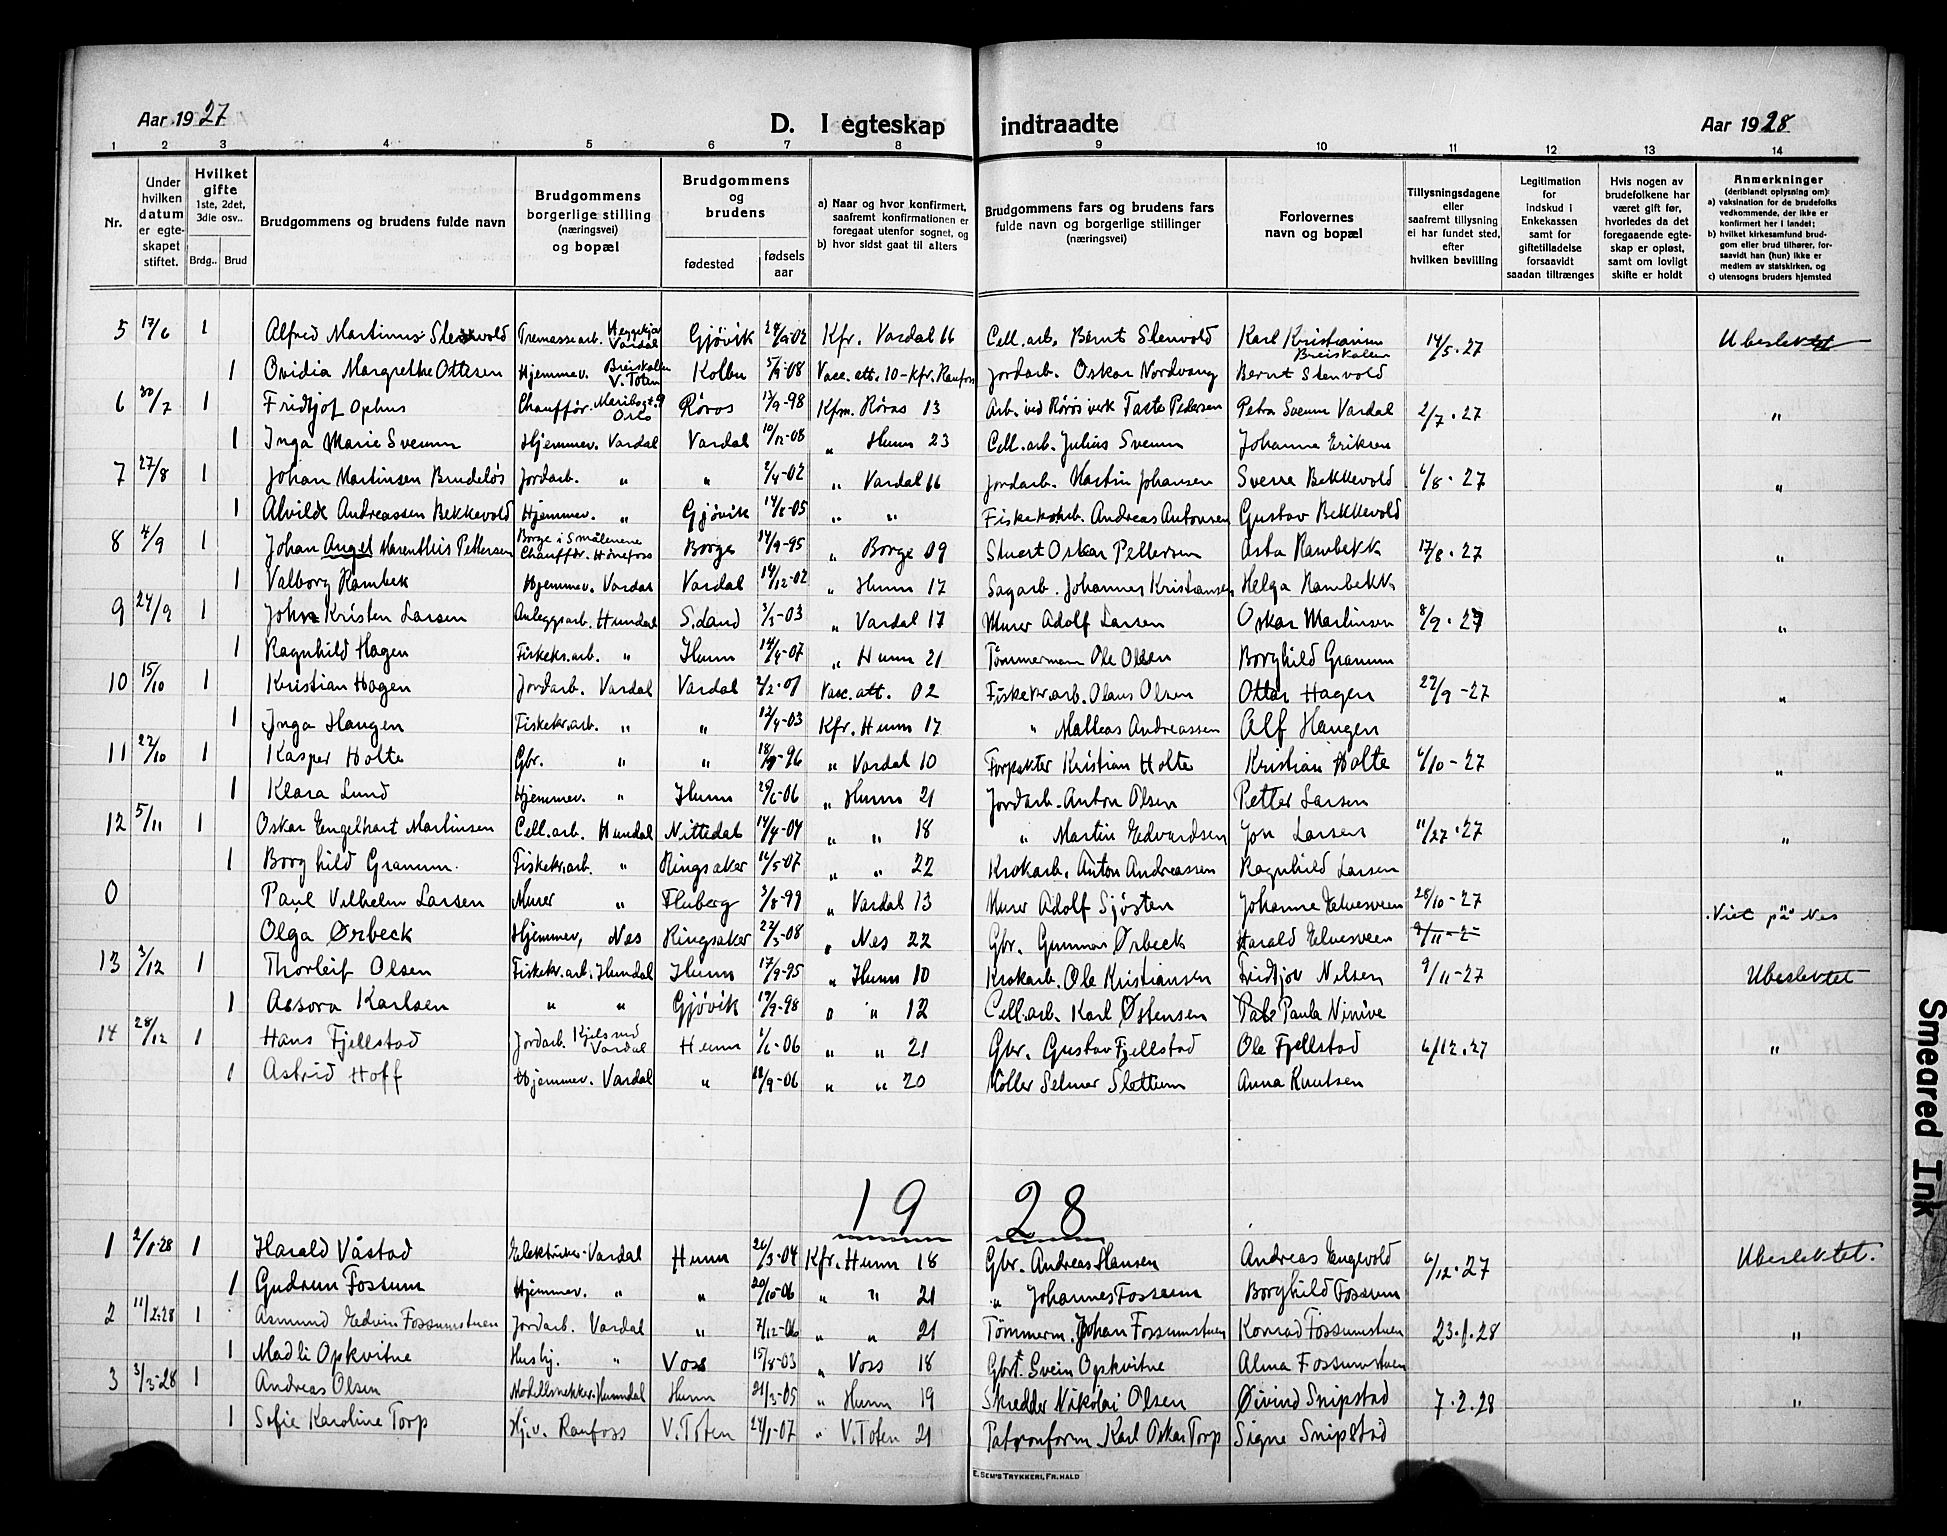 Aar 1927 D. I egteskap indtraadte Aar 1928
1 2 3 4 5 6 7 8 9 10 11 12 13 14
Nr. Under hvilken datum er egteskapet stiftet. Hvilket gifte 1ste, 2det, 3die osv.. Brdg.. Brud Brudgommens og brudens fulde navn Brudgommens borgerlige stilling (næringsvei) og bopæl Brudgommens og brudens fødested fødselsaar a) Naar og hvor konfirmert, saafremt konfirmationen er foregaat utenfor sognet, og b) hvor sidst gaat til alters Brudgommens fars og brudens fars fulde navn og borgerlige stillinger (næringsvei) Forlovernes navn og bopæl Tillysningsdagene eller saafremt tillysning ei har fundet sted, efter hvilken bevilling Legitimation for indskud i Enkekassen samt for giftetilladelse forsaavidt saadan tiltrænges Hvis nogen av brudefolkene har været gift før, hvorledes da det foregaaende egteskap er opløst, samt om lovligt skifte er holdt Anmerkninger (deriblandt oplysning om): a) vaksination for de brudefolks vedkommende, der ikke er konfirmert her i landet; b) hvilket kirkesamfund brudgom eller brud tilhører, forsaavidt han (hun) ikke er medlem av statskirken, og c) utensogns bruders hjemsted
5 17/6 1 Alfred Martinius Stenvold Tremassearb. Vardal Gjøvik 24/9-02 Kfr. Vardal 16 Cell.arb. Bernt Stenvold Karl Kristiansen Breiskallen 14/5-27 Ubeslektet
1 Ovidia Margrethe Ottesen Hjemmev. Breiskallen V. Toten Kolbu 5/9-08 Vacc.att. 10-Kfr. Raufoss Jordarb. Oskar Nordvang Bernt Stenvold
6 30/7 1 Fridtjof Ophus Chauffør. Oslo Røros 17/9-98 Kfm. Røros 13 Arb. ved Røros verk Petra Sveum Vardal 2/7.27 "
1 Inga Marie Sveum Hjemmev. Vardal Vardal 10/12-08 " Hunn 23 Cell.arb. Julius Sveum Johanne Eriksen
7 27/8 1 Johan Martinsen Brudeløs Jordarb. " " 2/4-02 " Vardal 16 Jordarb. Martin Johansen Sverre Bekkevold 6/8.27 "
1 Alvilde Andreassen Bekkevold Hjemmev. " Gjøvik 14/8-05 " " Andreas Antonsen Gustav Bekkevold
8 4/9 1 Johan Angel Marenthius Pettersen Borge i Smålenene Chauffør. Hønefoss Borge 14/9-95 " Borge 09 Stuert Oskar Pettersen Asta Rambekk 17/8.27 "
1 Valborg Rambek Hjemmev. Vardal Vardal 14/12-02 " Hunn 17 Sagarb. Johannes Kristiansen Helga Rambekk
9 24/9 1 John Kristen Larsen Anleggsarb. Hundal S.Land 3/3-03 " Vardal 17 Murer Adolf Larsen Oskar Martinsen 8/9.27 "
1 Ragnhild Hagen Fiskekr.arb. " Hunn 14/4-07 " Hunn 21 Tømmermann Ole Olsen Borghild Granum
10 15/10 1 Kristian Hagen Jordarb. Vardal Vardal Vacc.att. 02 Fiskekr.arb. Olaus Olsen Ottar Hagen 22/9-27 "
1 Inga Haugen Fiskekr.arb. " " 12/4-03 Kfr. Hunn 17 " Mathias Andreassen Alf Haugen
11 22/10 1 Kasper Holte Gbr. " " " Vardal 10 Forpakter Kristian Holte Kristian Holte 6/10-27 "
1 Klara Lund Hjemmev. " Hunn 29/6-06 " Hunn 21 Jordarb. Anton Olsen Petter Larsen
12 5/11 1 Oskar Engelhart Martinsen Cell.arb. Hundal Nittedal 14/4-04 " " 18 " Martin Edvardsen Jon Larsen 11/27.27 "
1 Borghild Granum. Fiskekr.arb. " Ringsaker 16/5-07 " " 22 Krokarb. Anton Andreassen Ragnhild Larsen
0 Paul Vilhelm Larsen Murer " Fluberg 3/8-99 " Vardal 13 Murer Adolf Sjösten Johanne Elvesveen 28/10-27 Viet på Nes
Olga Ørbeck Hjemmev, Nes Ringsaker 22/3-08 " Nes 22 Gbr. Gunnar Ørbeck Harald Elvesveen
13 3/12 1 Thorleif Olsen Fiskekr.arb. Hundal Hunn 17/9-95 " Hunn 10 Krokarb. Ole Kristiansen Fridtjov Nilsen 9/11-27 Ubeslektet
1 Assora Karlsen " " Gjøvik 19/9-98 " " 12 Cell.arb. Karl Østensen Paula Ninive
14 28/12 1 Hans Fjellstad Jordarb. Vardal Hunn 1/6-06 " " 21 Gbr. Gustav Fjellstad Ole Fjellstad 6/12.27 "
1 Astrid Hoff Hjemmev. Vardal " 18/9-06 " " 20 Möller Selmer Slettum Anna Knutsen
1928
1 2/1-28 1 Harald Våstad Elektriker Vardal Hunn 26/3-04 Kfr. Hunn 18 Gbr. Andreas Hansen Andreas Engevold 6/12.27 Ubeslektet.
1 Gudrun Fossum Hjemmev. " " 20/10-06 " " 21 " Johannes Fossum Borghild Fossum
2 11/2-28 1 Asmund Edvin Fossumstuen Jordarb. Vardal " 7/12-06 " " 21 Tømmerm. Johan Fossumstuen Konrad Fossumstuen 23.1.28 "
1 Madli Opkvitne Husbj. " Voss 15/8-03 " Voss 18 Gbr. Svein Opkvitne Alma Fossumstuen
3 3/3-28 1 Andreas Olsen Modellsnekker. Hunndal Hunn 21/3-05 " Hunn 19 Skredder Nikolai Olsen Øivind Snipstad 7.2.28 "
1 Sofie Karoline Torp Hj.v. Raufoss V. Toten 24/1-07 " V. Toten 21 Patronform. Karl Oskar Torp Signe Snipstad
E. SEM'S TRYKKERI, FR.HALD
Smeared Ink